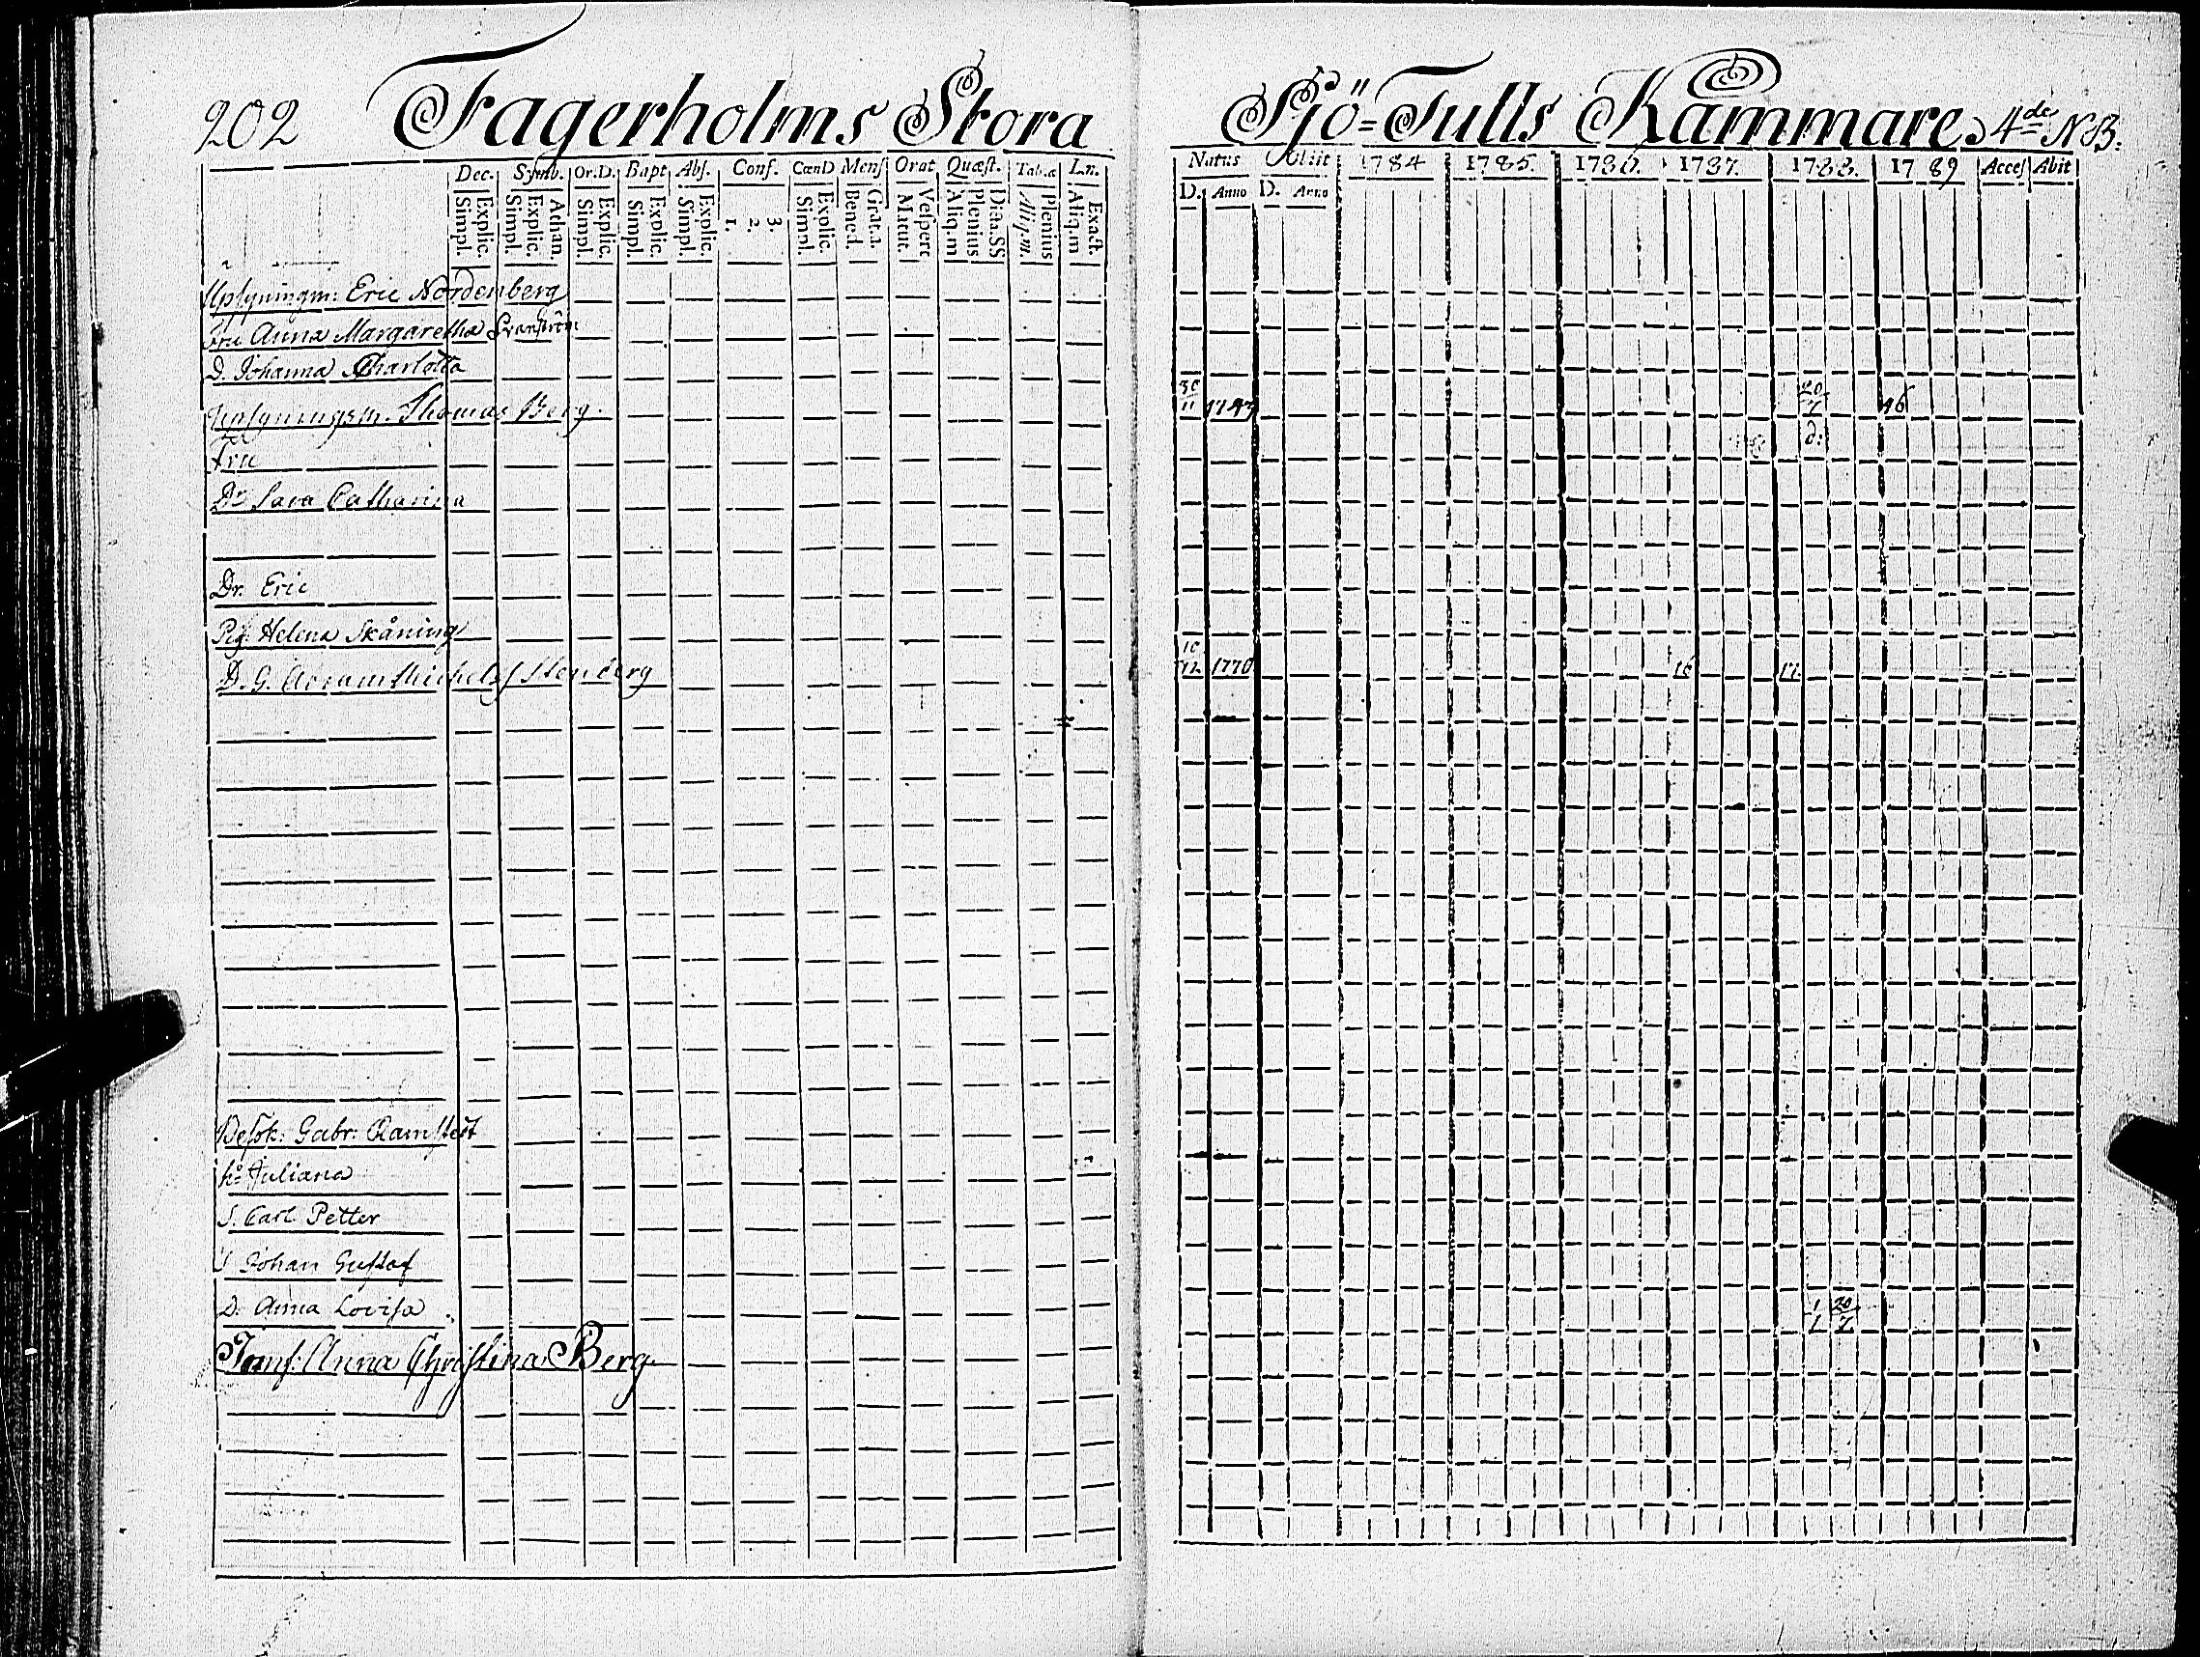 202 Fagerholms Stora Sjö=Tulls Kammare 4de N B.
Dec. Symb. Or.D. Bapt Abſ. Conf. CœnD Menſ Orat Quæſt. Tabæ Ln.
Explic. Simpl. Athan. Explic. Simpl. Explic. Simpl. Explic. Simpl. Explic. Simpl. 3. 2. 1. Explic. Simpl. Grat.a. Bened. Veſpert Matut. Dicta.SS Plenius Aliq.m Plenius Aliq.m. Exact. Aliq.m
Natus Obiit 1784 1785. 1786. 1787. 1788. 1789 Acceſ Abit
D. Anno D. Anno
Upſyningm: Eric Nordenberg
Fru Anna Margaretha
D. Johanna Charlotta
Upſyningsm. Thomas Berg. 30/11 1743 20/7 16
Fru d:
Dr Sara Catharina
Dr. Eric
Pig. Helena Skåning
D. G. Abram Michelsſ Stenberg 10/12 1770 16 17.
Beſök: Gabr: Ramſtedt
h: Juliana
S. Carl Petter
S Johan Guſtaf
D. Anna Loviſa 1/1 20/7
Jomf. Anna Chriſtina Berg.